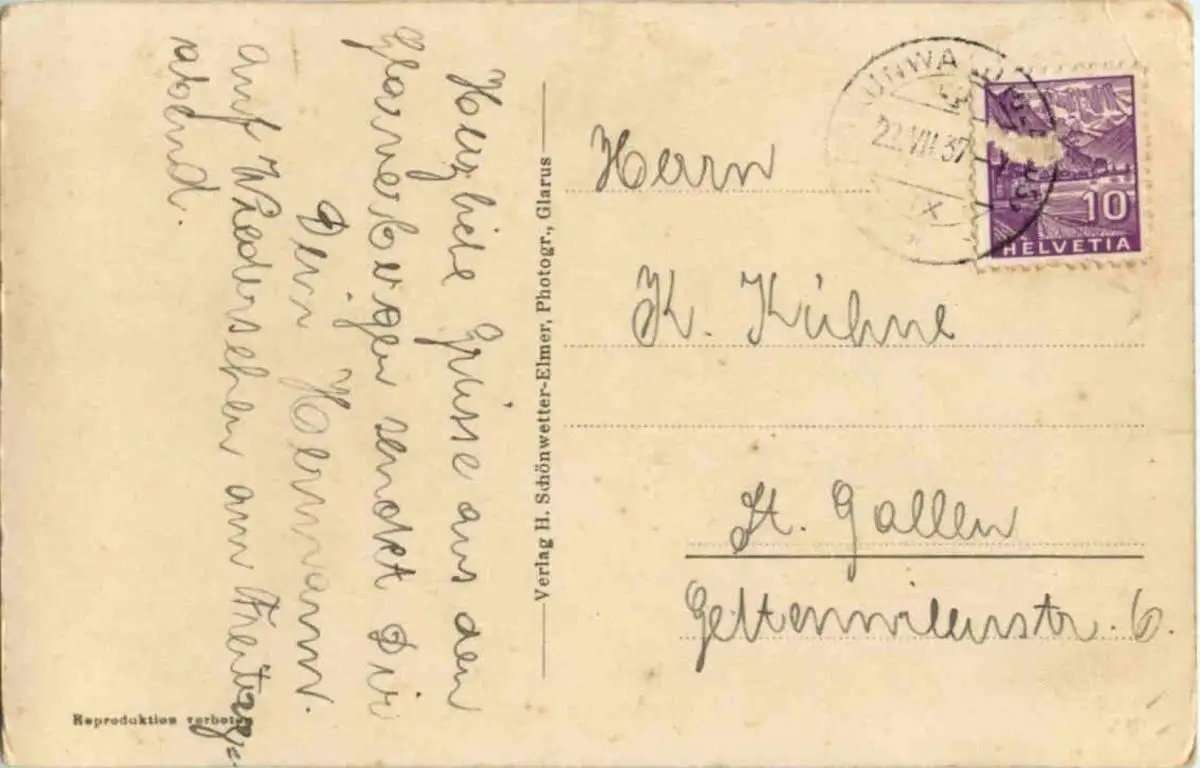 Herzliche Grüsse aus den
Glarnerbergen sendet Dir
Dein Hermann.
auf Wiedersehen am Freitag-
abend.
Verlag H. Schönwetter-Elmer, Photogr., Glarus
Reproduktion verboten
22.VII.37
X
10
HELVETIA
Herrn
K. Kühne
St. Gallen
Geltenwilenstr. 6.